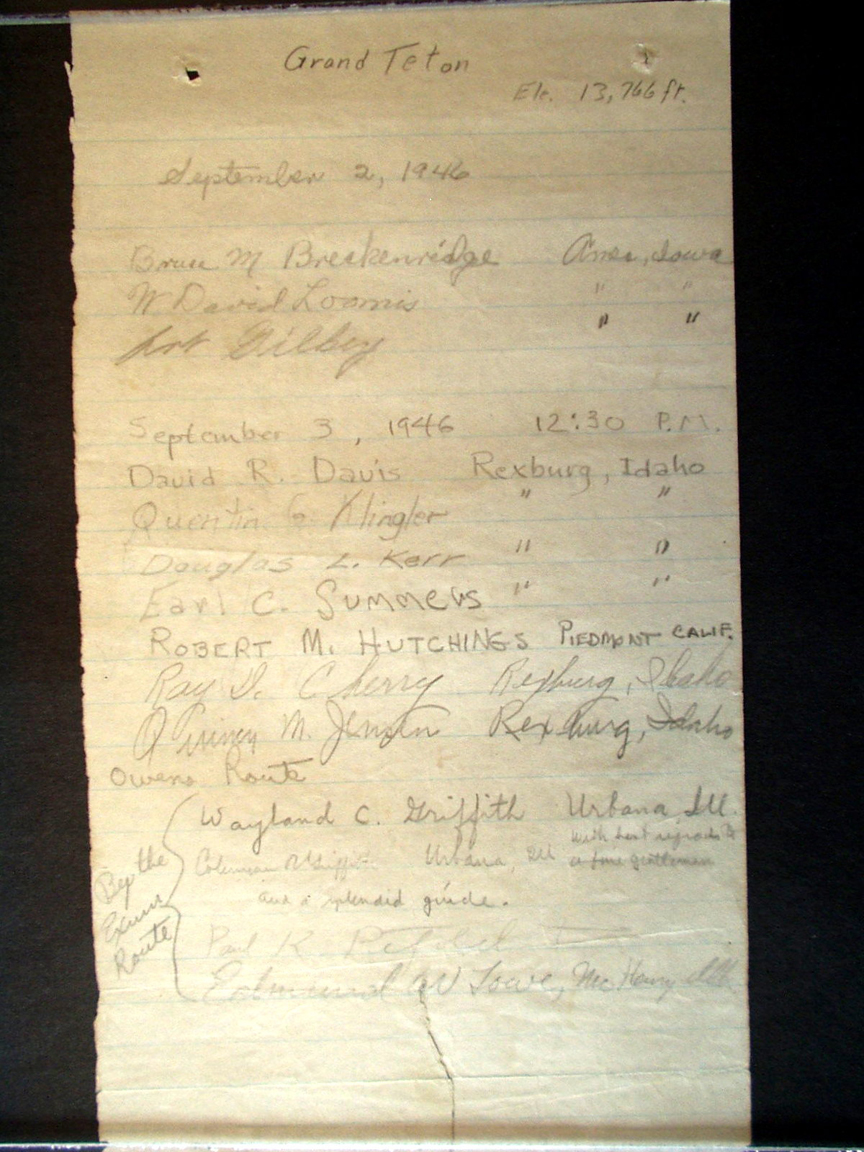 Grand Teton
Ele. 13,766 ft.
September 2, 1946
Bruce M Breckenridge Ames, Iowa
W David Loomis " "
Art Gilbey " "
September 3, 1946 12:30 P.M.
David R. Davis Rexburg, Idaho
Quentin Klingler " "
Douglas L. Kerr " "
Earl C. Summers " "
ROBERT M. HUTCHINGS PIEDMONT CALIF.
Ray D. Cherry Rexburg, Idaho
M. Jensen Rexburg, Idaho
Owens Route
By the Exum Route
Wayland C. Griffith Urbana, Ill.
Coleman R. Griffith Urbana, Ill with best regards to
a fine gentleman
and a splendid guide.
Paul K.
Edmund W Lowe, McHenry Ill